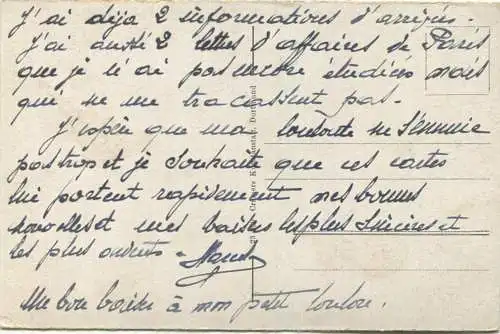 J'ai déja 2 informations d'arrivées.
J'ai aussi 2 lettres d'affaires de Paris
que je n'ai pas encore étudiées mais
qui ne me tracassent pas.
J'espère que ma louloute ne s'ennuie
pas trop et je souhaite que ces cartes
lui portent rapidement mes bonnes
nouvelles et mes baisers les plus sincères et
les plus ardents -
Un bon baiser à mon petit loulou.